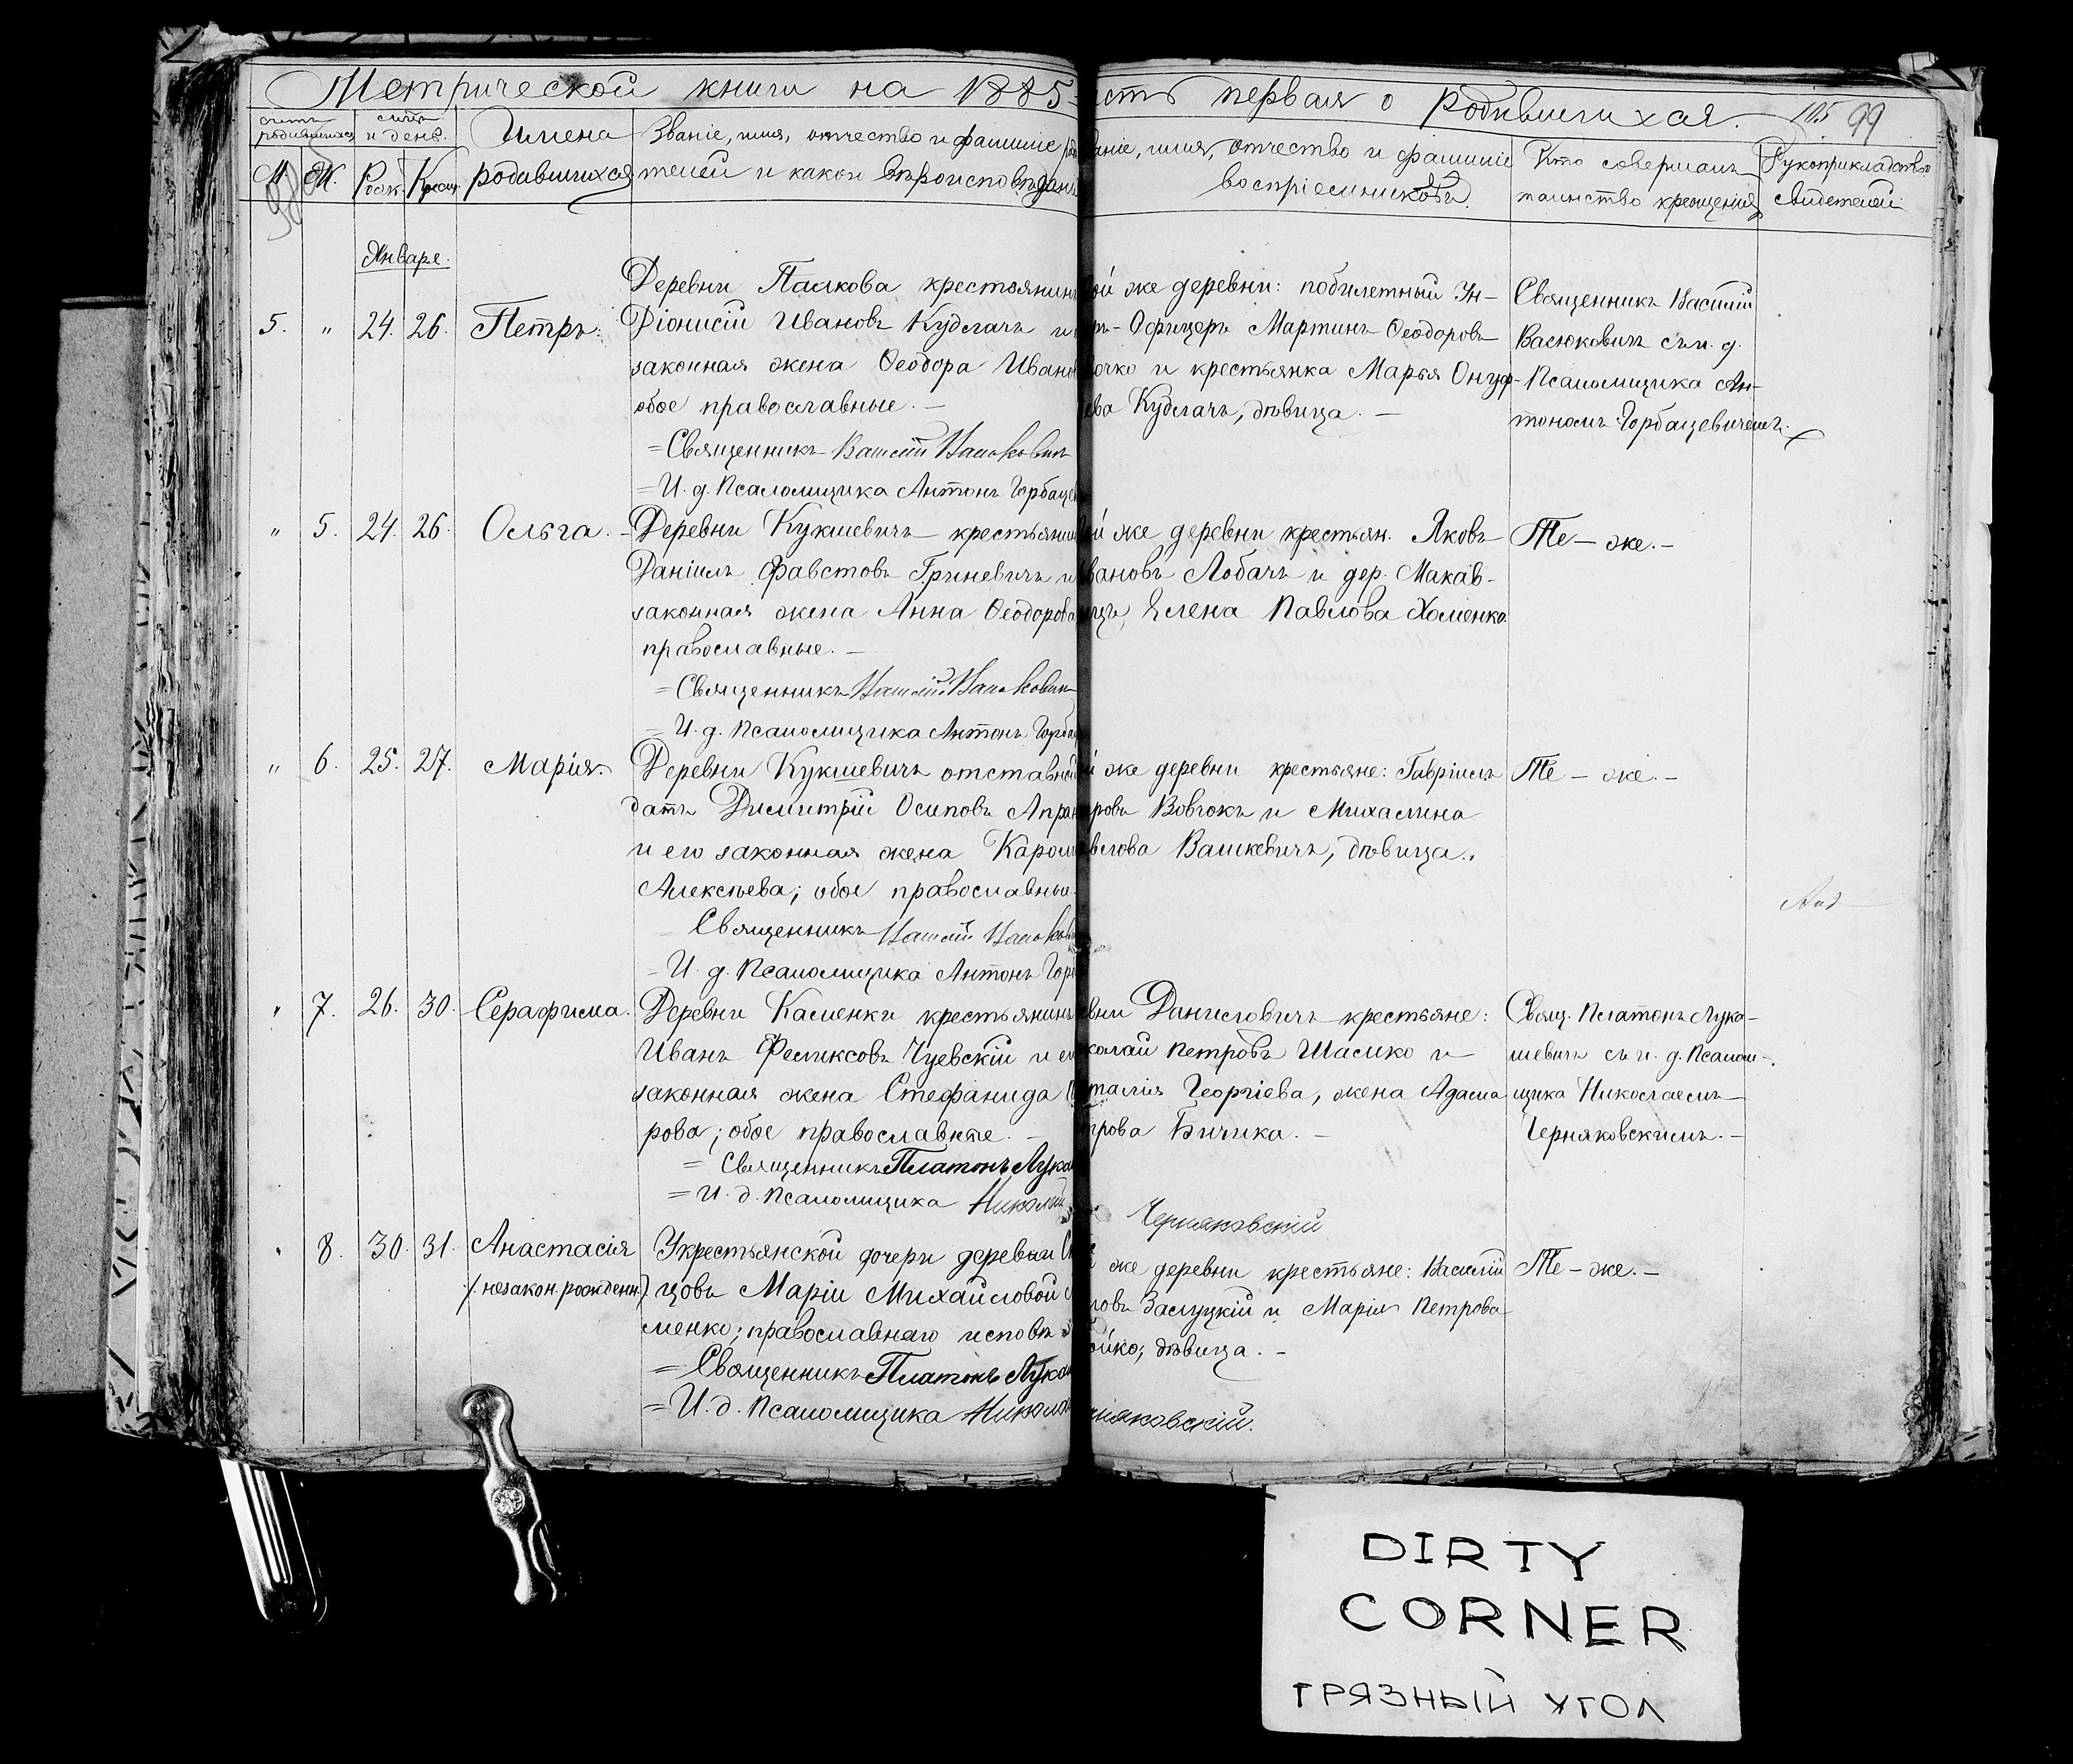 Метрической книги на 1885
сть первая о родившихся. 105 99
счетъ родившихся
М. Ж.
и день.
Рожд. Крещ.
Имена
родившихся
Званіе, имя, отчество и фамиліе
телей и какого вѣроисповѣдан
аніе, имя, отчество и фамиліе
воспріемниковъ.
Кто совершалъ
таинство крещенія
Рукоприкладство
свидетелей
Январе.
5. " 24. 26. Петръ.
Деревни Палкова крестьянинъ
Діонисій Ивановъ Кудлачъ и
законная жена Ѳеодора Иван
обое православные. —
= Священникъ Василій Васюковичъ
= И. д. Псаломщика Антонъ Горбаце
ой же деревни: побилетный Ун-
ръ-Офицеръ Мартинъ Ѳеодоровъ
очко и крестьянка Марья Онуф-
ева Кудлачъ, дѣвица. —
Священникъ Василій
Васюковичъ съ и. д.
Псаломщика Ан-
тономъ Горбацевичемъ.
" 5. 24. 26. Ольга. -
Деревни Кукшевичъ крестьянин
Даніилъ Фавстовъ Гриневичъ и
законная жена Анна Ѳеодорова
православные. —
= Священникъ Василій Васюкович
= И. д. Псаломщика Антонъ Горба
ой же деревни крестьян. Яковъ
вановъ Лобачъ и дер. Макав-
ичъ, Елена Павлова Хоменко
Те - же. -
" 6. 25. 27. Марія.
Деревни Кукшевичъ отставной
датъ Димитрій Осиповъ Апра
и его законная жена Карол
Алексѣева; обое православные
Священникъ Василій Васюков
= И. д. Псаломщика Антонъ Гор
й же деревни крестьяне: Гавріилъ
тровъ Вовчокъ и Михалина
влова Вашкевичъ, дѣвица.
Те - же. -
" 7. 26. 30. Серафима.
Деревни Каменки крестьянинъ
Иванъ Феликсовъ Чуевскій и ег
законная жена Стефанида П
рова; обое православные. -
= Священникъ Платонъ Лука
= И. д. Псаломщика Николай
Черняковскій
вни Даниловичъ крестьяне:
колай Петровъ Шасико и
талія Георгіева, жена Адама
трова Бичика. -
Свящ. Платонъ Лука-
шевичъ съ и. д. Псалом-
щика Николаемъ
Черняковскимъ. -
" 8. 30. 31. Анастасія
/. незакон. рожденн.)
У крестьянской дочери деревни
цовъ Маріи Михайловой
менко; православнаго исповѣ
= Священникъ Платонъ Лука
= И. д. Псаломщика Никола
рняковскій.
же деревни крестьяне: Василій
ловъ Заслуцкій и Марія Петрова
ойко, дѣвица. -
Те - же. -
DIRTY
CORNER
ГРЯЗНЫЙ УГОЛ